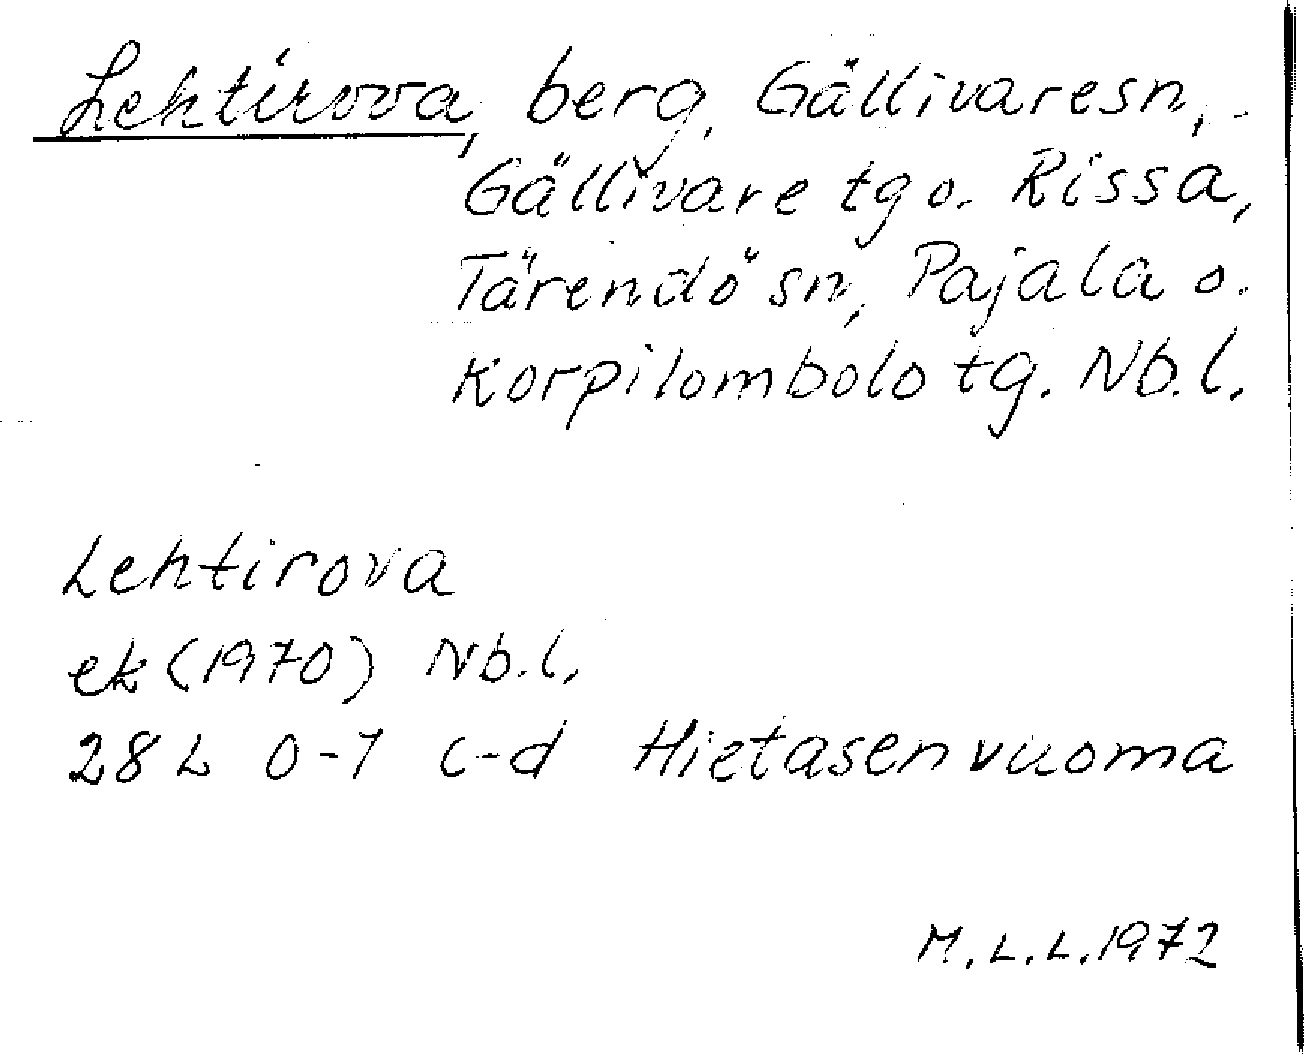 Lehtirova, berg, Gällivare sn,
Gällivare tg o. Rissa,
Tärendö sn, Pajala o.
Korpilombolo tg. Nb.l.
Lehtirova
ek (1970) Nb.l.
28 L 0-1 c-d Hietasenvuoma
M.L.L. 1972